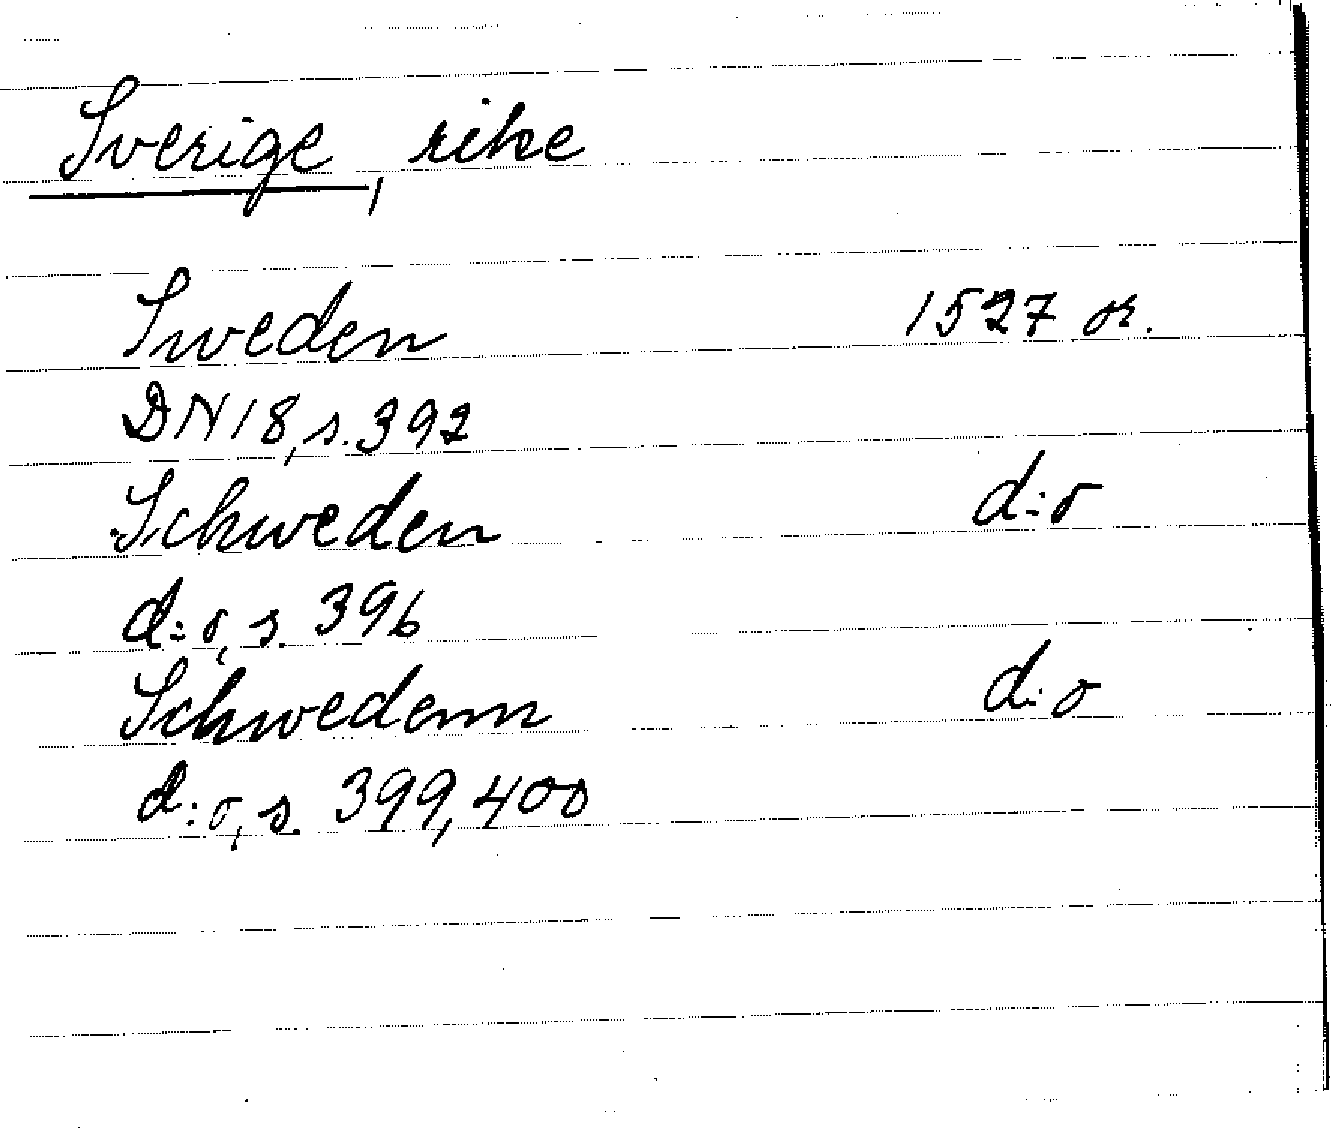 Sverige, rike
Sweden 1527 or.
DN 18, s. 392
Schweden d:o
d:o, s. 396
Schwedenn d:o
d:o, s. 399, 400